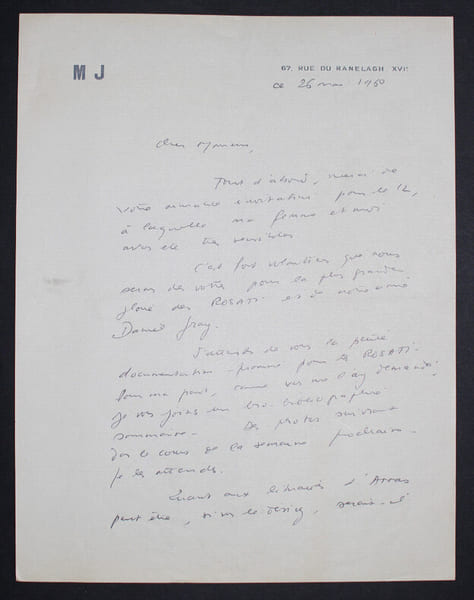 M J
67, RUE DU RANELAGH. XVIᵉ
ce 26 mai 1960
Cher Monsieur,
Tout d'abord, merci de
votre aimable invitation pour le 12,
à laquelle ma femme et moi
avons été très sensibles
C'est fort volontiers que nous
serons des vôtres pour la plus grande
gloire des ROSATI et de notre ami
Daniel Gray.
J'attends de vous la petite
documentation promise pour les ROSATI.
Pour ma part, comme vous me l'avez demandé,
je vous joins une bio-bibliographie
sommaire. Des photos suivront
dans le cours de la semaine prochaine.
Je les attends.
Quant aux libraires d'Arras
peut-être, si on le désire, serait-il